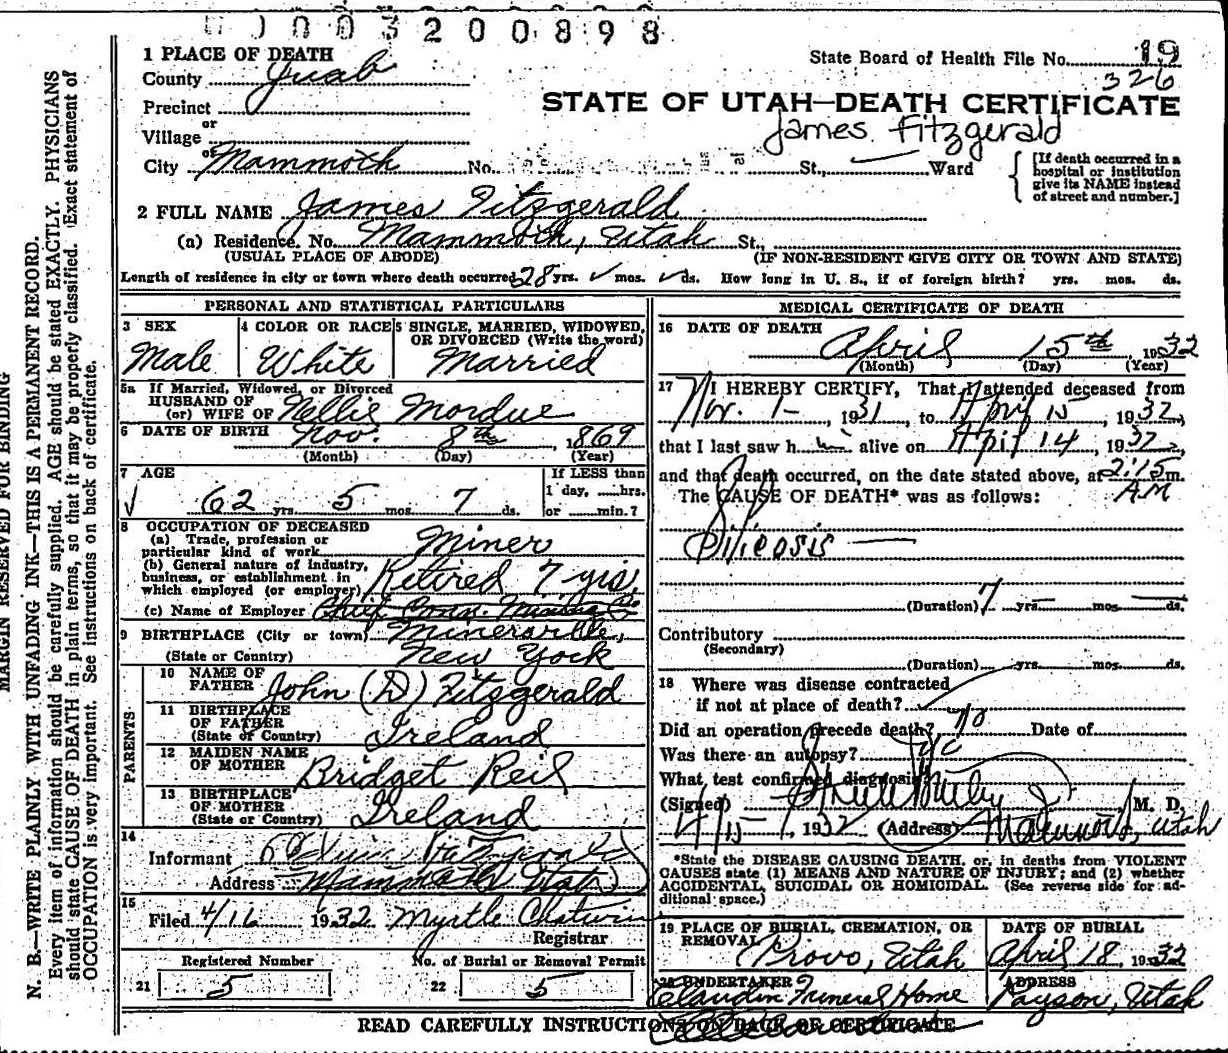 0003200898
1 PLACE OF DEATH
State Board of Health File No. 19
County Juab
326
Precinct
STATE OF UTAH—DEATH CERTIFICATE
or
Village
James Fitzgerald
or
City Mammoth No. St., Ward
[If death occurred in a
hospital or institution
give its NAME instead
of street and number.]
2 FULL NAME James Fitzgerald
(a) Residence. No. Mammoth, Utah St.,
(USUAL PLACE OF ABODE) (IF NON-RESIDENT GIVE CITY OR TOWN AND STATE)
Length of residence in city or town where death occurred 28 yrs. mos. ds. How long in U. S., if of foreign birth? yrs. mos. ds.
PERSONAL AND STATISTICAL PARTICULARS
3 SEX
Male
4 COLOR OR RACE
White
5 SINGLE, MARRIED, WIDOWED,
OR DIVORCED (Write the word)
Married
5a If Married, Widowed, or Divorced
HUSBAND OF
(or) WIFE OF Nellie Mordue
6 DATE OF BIRTH Nov. 8th, 1869
(Month) (Day) (Year)
7 AGE
62 yrs. 5 mos. 7 ds.
If LESS than
1 day, hrs.
or min.?
8 OCCUPATION OF DECEASED
(a) Trade, profession or
particular kind of work Miner
(b) General nature of industry,
business, or establishment in
which employed (or employer) Retired 7 yrs.
(c) Name of Employer Chief Conn. Mining Co.
9 BIRTHPLACE (City or town) Mineraville,
(State or Country) New York
PARENTS
10 NAME OF
FATHER John (D) Fitzgerald
11 BIRTHPLACE
OF FATHER
(State or Country) Ireland
12 MAIDEN NAME
OF MOTHER Bridget Reil
13 BIRTHPLACE
OF MOTHER
(State or Country) Ireland
14
Informant Fitzgerald
Address Mammoth Utah
15
Filed 4/16 1932 Myrtle Chatwin
Registrar
Registered Number
21 5
No. of Burial or Removal Permit
22 5
MEDICAL CERTIFICATE OF DEATH
16 DATE OF DEATH
April 15th, 1932
(Month) (Day) (Year)
17 I HEREBY CERTIFY, That I attended deceased from
Nov. 1 - 1931, to April 15, 1932,
that I last saw him alive on April 14, 1932,
and that death occurred, on the date stated above, at 2:15 m.
A M
The CAUSE OF DEATH* was as follows:
Silicosis
(Duration) 7 yrs. mos. ds.
Contributory
(Secondary)
(Duration) yrs. mos. ds.
18 Where was disease contracted
if not at place of death?
Did an operation precede death? No Date of
Was there an autopsy? No
What test confirmed diagnosis?
(Signed) M. D.
4/15, 1932 (Address) Mammoth, Utah
*State the DISEASE CAUSING DEATH, or, in deaths from VIOLENT
CAUSES state (1) MEANS AND NATURE OF INJURY; and (2) whether
ACCIDENTAL, SUICIDAL OR HOMICIDAL. (See reverse side for ad-
ditional space.)
19 PLACE OF BURIAL, CREMATION, OR
REMOVAL
Provo, Utah
DATE OF BURIAL
April 18, 1932
20 UNDERTAKER
Claudin Funeral Home
ADDRESS
Payson, Utah
READ CAREFULLY INSTRUCTIONS ON BACK OF CERTIFICATE
MARGIN RESERVED FOR BINDING
N. B.—WRITE PLAINLY WITH UNFADING INK—THIS IS A PERMANENT RECORD.
Every item of information should be carefully supplied. AGE should be stated EXACTLY. PHYSICIANS
should state CAUSE OF DEATH in plain terms, so that it may be properly classified. Exact statement of
OCCUPATION is very important. See instructions on back of certificate.